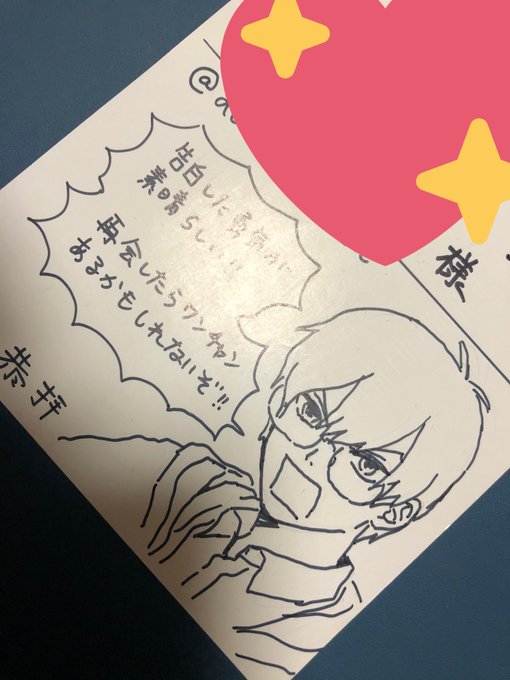 様
告白した勇気が
素晴らしいし
再会したらワンチャン
あるかもしれないぞ!!
恭拝